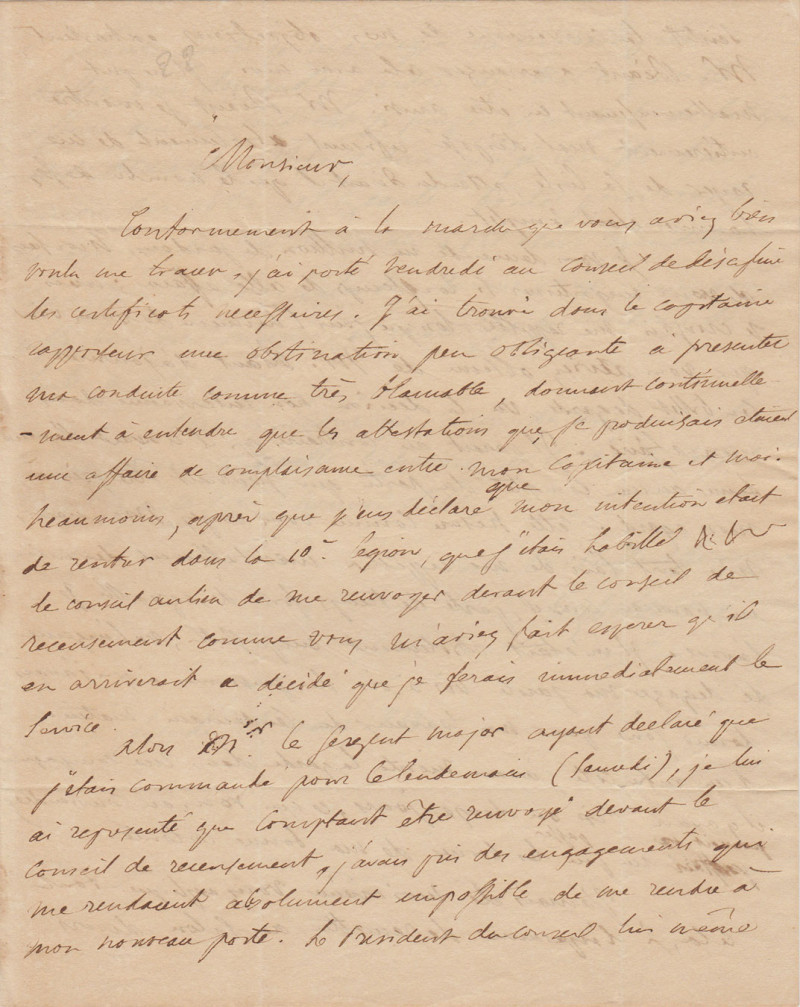 Monsieur,
Conformement à la marche que vous aviez bien
voulu me tracer, j'ai porté vendredi au conseil de discipline
les certificats necessaires. J'ai trouvé dans le capitaine
rapporteur une obstination peu obligeante à presenter
ma conduite comme très blamable, donnant continuelle
-ment à entendre que les attestations que je produisais etaient
une affaire de complaisance entre mon capitaine et moi.
Neanmoins, après que j'eus déclaré que mon intention etait
de rentrer dans la 10e legion, que j'etais habillé
le conseil au lieu de me renvoyer devant le conseil de
recensement comme vous m'aviez fait esperer qu'il
en arriverait a décidé que je ferais immediatement le
service.
Alors le sergent major ayant declaré que
j'etais commandé pour le lendemain (samedi), je lui
ai representé que comptant être renvoyé devant le
conseil de recensement, j'avais pris des engagements qui
me rendaient absolument impossible de me rendre à
mon nouveau poste. Le President du conseil lui même